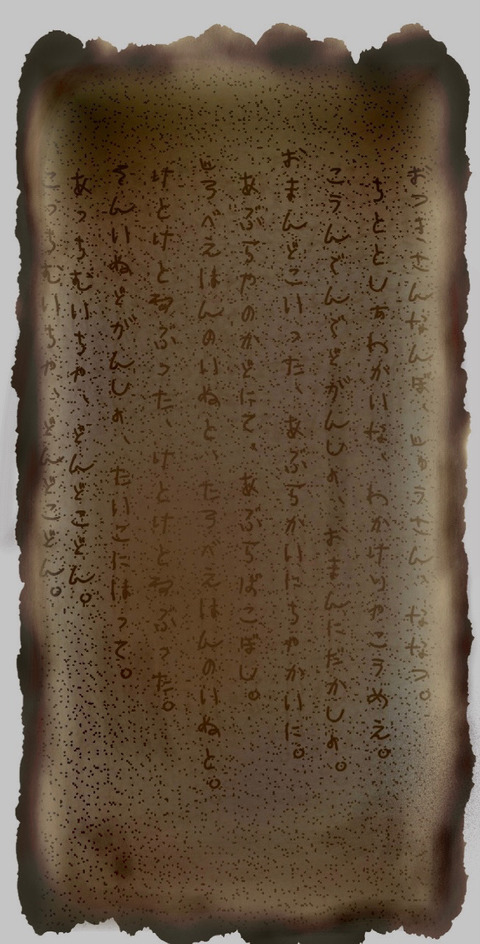 おつきさんなんぼ、じゅうさん、ななつ。
ちととしゃわかいな、わかけりゃこうめえ。
こうんでんでどがんしょ、おまんにだかしょ。
おまんどこいった、あぶらかいにちゃかいに。
あぶらやのかどにて、あぶらぱこぼし。
じろべえはんのいぬと、たろべえはんのいぬと。
けとけとねぶった、けとけとねぶった。
そんいぬどがんしょ、たいこにはって。
あっちむいちゃ、どんどこどん。
こっちむいちゃ、どんどこどん。